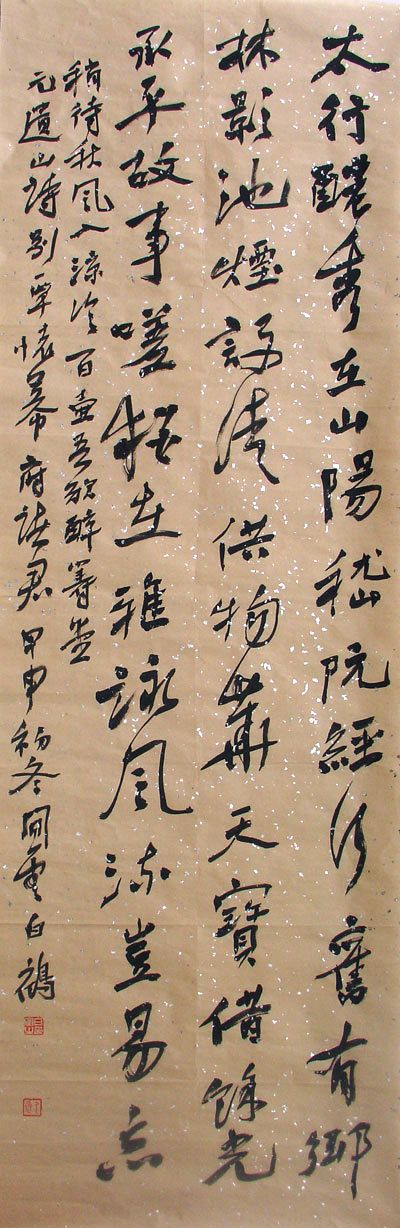 太行醲秀在山陽嵇阮經行舊有鄉
林影池煙設清供物華天寶借餘光
承平故事嗟猶在雅詠風流豈易忘
稍待秋風入涼冷百壺吾欲醉籌
元遺山詩別覃懷幕府諸君 甲申初冬 白